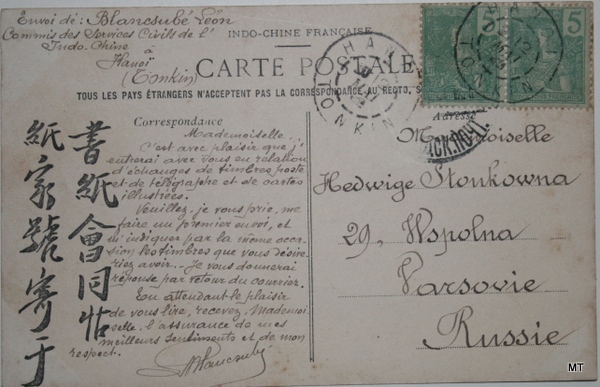 Envoi de : Blancsubé Léon
Commis des Services Civils de l'
Indo-Chine
à
Hanoï
(Tonkin)
INDO-CHINE FRANÇAISE
CARTE POSTALE
TOUS LES PAYS ÉTRANGERS N'ACCEPTENT PAS LA CORRESPONDANCE AU RECTO, S
5
5
HANOI
TONKIN
HANOI
TONKIN
Correspondance
Adresse
Mademoiselle
C'est avec plaisir que j'
entrerai avec vous en relation
d'échanges de timbres poste
et de télégraphe et de cartes
illustrées.
Veuillez, je vous prie, me
faire un premier envoi, et
m'indiquer par la même occa-
sion les timbres que vous désire-
riez avoir. Je vous donnerai
réponse par retour du courrier.
En attendant le plaisir
de vous lire, recevez, Mademoi-
selle, l'assurance de mes
meilleurs sentiments et de mon
respect.
Blancsubé
書紙會同帖
紙家號寄于
Mademoiselle
Hedwige Stonkowna
29, Wspolna
Varsovie
Russie
MT